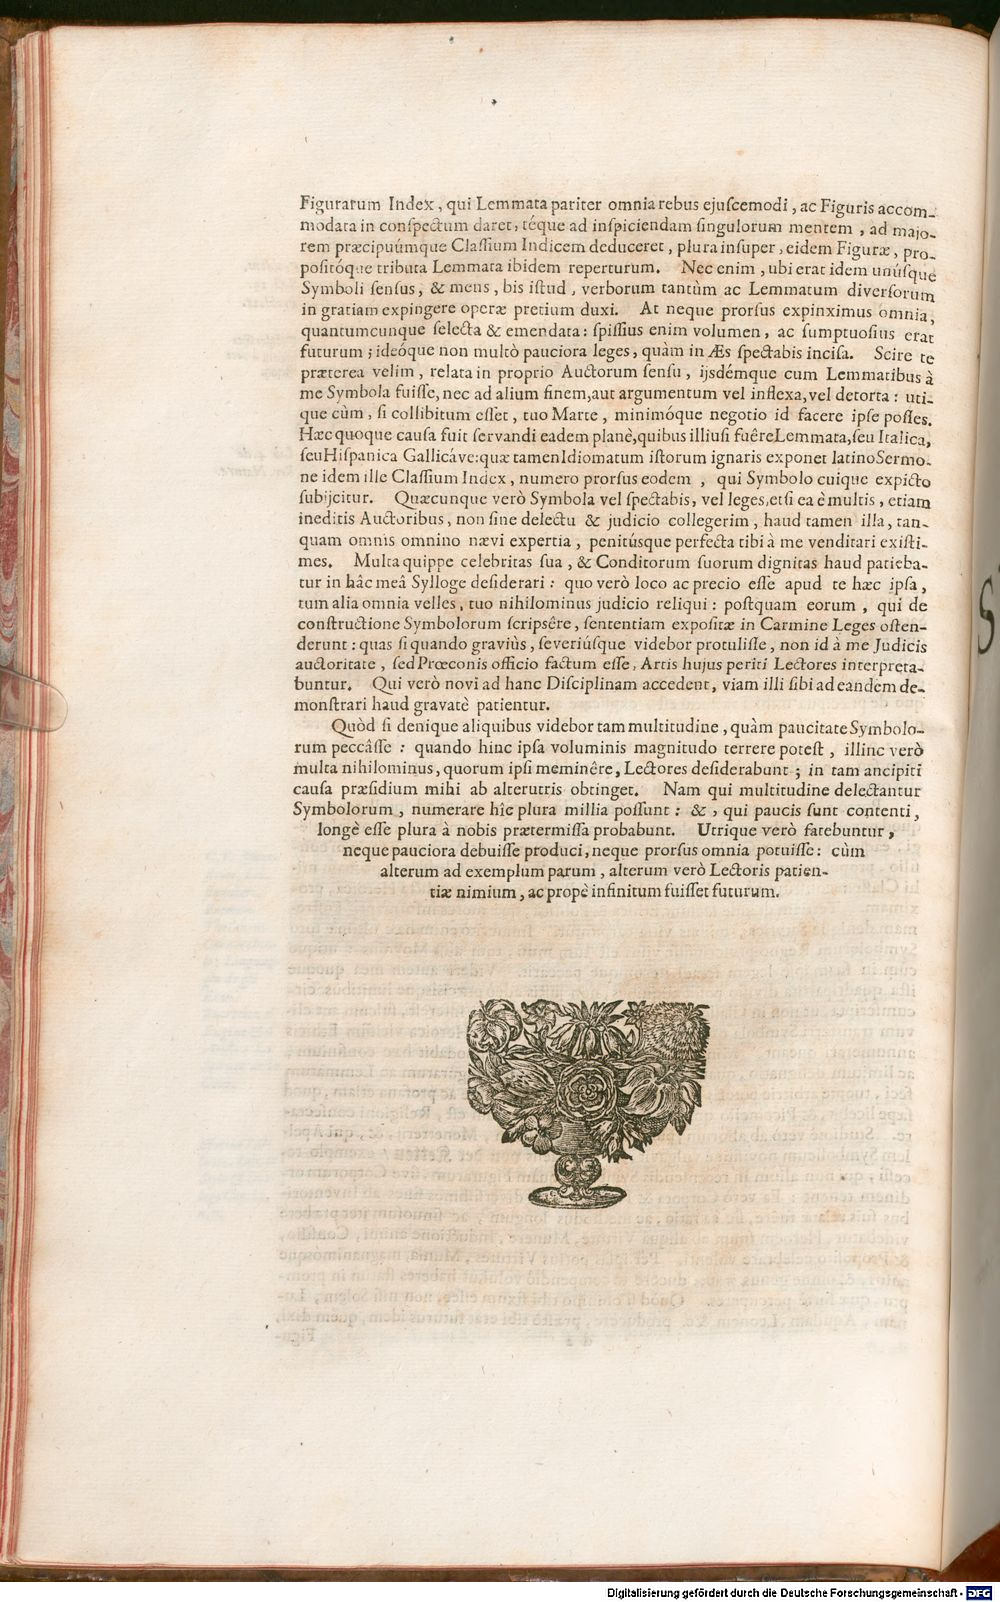 Figurarum Index, qui Lemmata pariter omnia rebus ejuscemodi, ac Figuris accom-
modata in conspectum daret, téque ad inspiciendam singulorum mentem, ad majo-
rem præcipuúmque Classium Indicem deduceret, plura insuper, eidem Figuræ, pro-
positóque tributa Lemmata ibidem reperturum. Nec enim, ubi erat idem unúsque
Symboli sensus, & mens, bis istud, verborum tantùm ac Lemmatum diversorum
in gratiam expingere operæ pretium duxi. At neque prorsus expinximus omnia,
quantumcunque selecta & emendata: spissius enim volumen, ac sumptuosius erat
futurum; ideóque non multò pauciora leges, quàm in Æs spectabis incisa. Scire te
præterea velim, relata in proprio Auctorum sensu, ijsdémque cum Lemmatibus à
me Symbola fuisse, nec ad alium finem, aut argumentum vel inflexa, vel detorta: uti-
que cùm, si collibitum esset, tuo Marte, minimóque negotio id facere ipse posses.
Hæc quoque causa fuit servandi eadem planè, quibus illiusi fuêre Lemmata, seu Italica,
seu Hispanica Gallicáve: quæ tamen Idiomatum istorum ignaris exponet latino Sermo-
ne idem ille Classium Index, numero prorsus eodem, qui Symbolo cuique expicto
subijcitur. Quæcunque verò Symbola vel spectabis, vel leges, etsi ea è multis, etiam
ineditis Auctoribus, non sine delectu & judicio collegerim, haud tamen illa, tan-
quam omnis omnino nævi expertia, penitúsque perfecta tibi à me venditari existi-
mes. Multa quippe celebritas sua, & Conditorum suorum dignitas haud patieba-
tur in hâc meâ Sylloge desiderari: quo verò loco ac precio esse apud te hæc ipsa,
tum alia omnia velles, tuo nihilominus judicio reliqui: postquam eorum, qui de
constructione Symbolorum scripsêre, sententiam expositæ in Carmine Leges osten-
derunt: quas si quando graviùs, severiúsque videbor protulisse, non id à me Judicis
auctoritate, sed Præconis officio factum esse, Artis hujus periti Lectores interpreta-
buntur. Qui verò novi ad hanc Disciplinam accedent, viam illi sibi ad eandem de-
monstrari haud gravatè patientur.
Quòd si denique aliquibus videbor tam multitudine, quàm paucitate Symbolo-
rum peccâsse: quando hinc ipsa voluminis magnitudo terrere potest, illinc verò
multa nihilominus, quorum ipsi meminêre, Lectores desiderabunt; in tam ancipiti
causa præsidium mihi ab alterutris obtinget. Nam qui multitudine delectantur
Symbolorum, numerare hîc plura millia possunt: &, qui paucis sunt contenti,
longè esse plura à nobis prætermissa probabunt. Utrique verò fatebuntur,
neque pauciora debuisse produci, neque prorsus omnia potuisse: cùm
alterum ad exemplum parum, alterum verò Lectoris patien-
tiæ nimium, ac propè infinitum fuisset futurum.
Digitalisierung gefördert durch die Deutsche Forschungsgemeinschaft - DFG